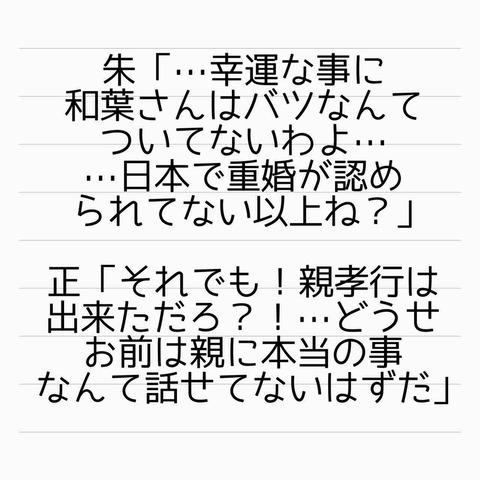 朱「…幸運な事に
和葉さんはバツなんて
ついてないわよ…
…日本で重婚が認め
られてない以上ね？」
正「それでも！親孝行は
出来ただろ？！…どうせ
お前は親に本当の事
なんて話せてないはずだ」